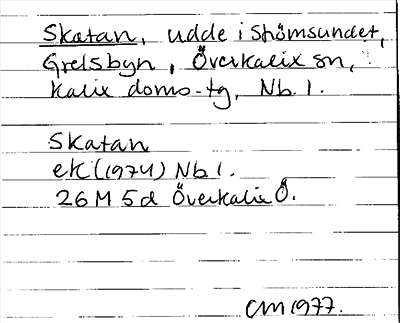 Skatan, udde i Stömsundet,
Grelsbyn, Överkalix sn,
Kalix doms-tg, Nb l.
Skatan
ek (1974) Nb l.
26 M 5d Överkalix Ö.
CM 1977.